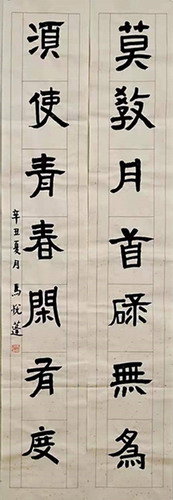 莫教月首碌無為
須使青春閑有度
辛丑夏月 馬悅蓬